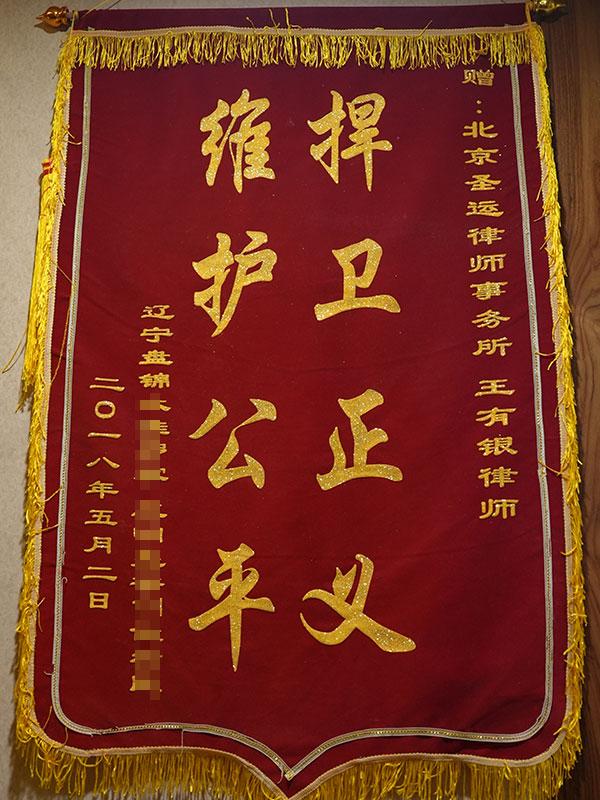 赠：北京圣运律师事务所 王有银律师
捍卫正义
维护公平
辽宁盘锦
二〇一八年五月二日